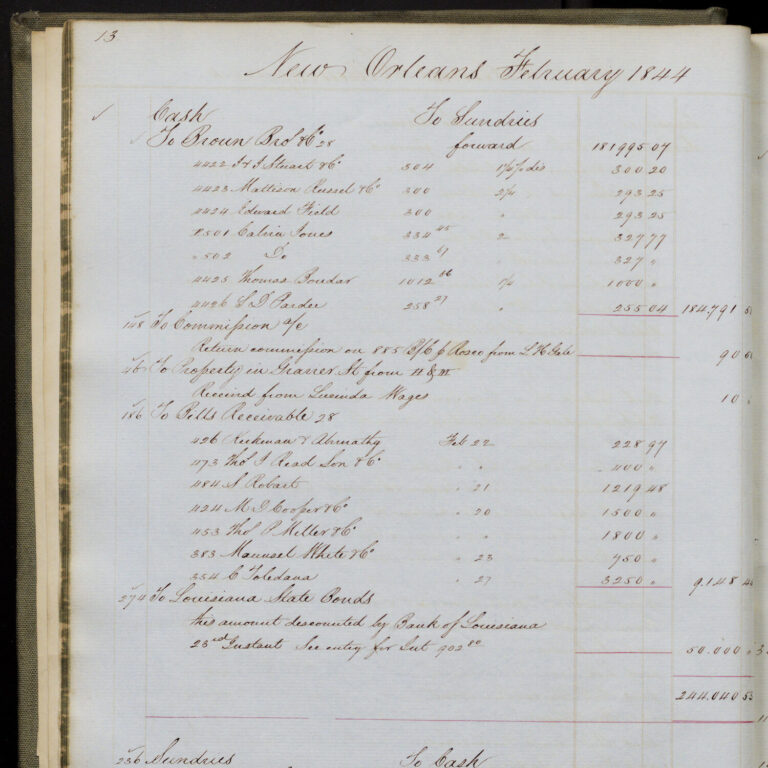 13
New Orleans February 1844
Cash To Sundries
To Brown Bros & Co 28 forward 181995 07
4422 J & J Stuart & Co 304 1 300 20
4423 Mattison Russel & Co 300 2 293 25
4424 Edward Field 300 " 293 25
8501 Calvin Jones 334 45 2 327 77
" 502 Do 333 67 327 "
4425 Thomas 1012 16 1000 "
4426 S D Pardee 258 27 " 255 04 184.791
148 To Commission a/c
Return commission on 885 B/C from L H Gale 90
46 To Property in Gravier St from
Received from Lucinda Wages 10
186 To Bills Receivable 28
426 & Abernathy Feb 22 228 97
473 Thos J Read Son & Co " " 400 "
484 S Robart " 21 1219 48
424 M D Cooper & Co " 20 1500 "
453 Thos P Miller & Co 1800 "
383 Maunsel White & Co " 23 750 "
354 C Toledana " 27 3250 " 9.148
274 To Louisiana State Bonds
this amount descounted by Bank of Louisiana
23rd Instant See entry for Int 902 80 50.000
244.040 53
236 Sundries To Cash